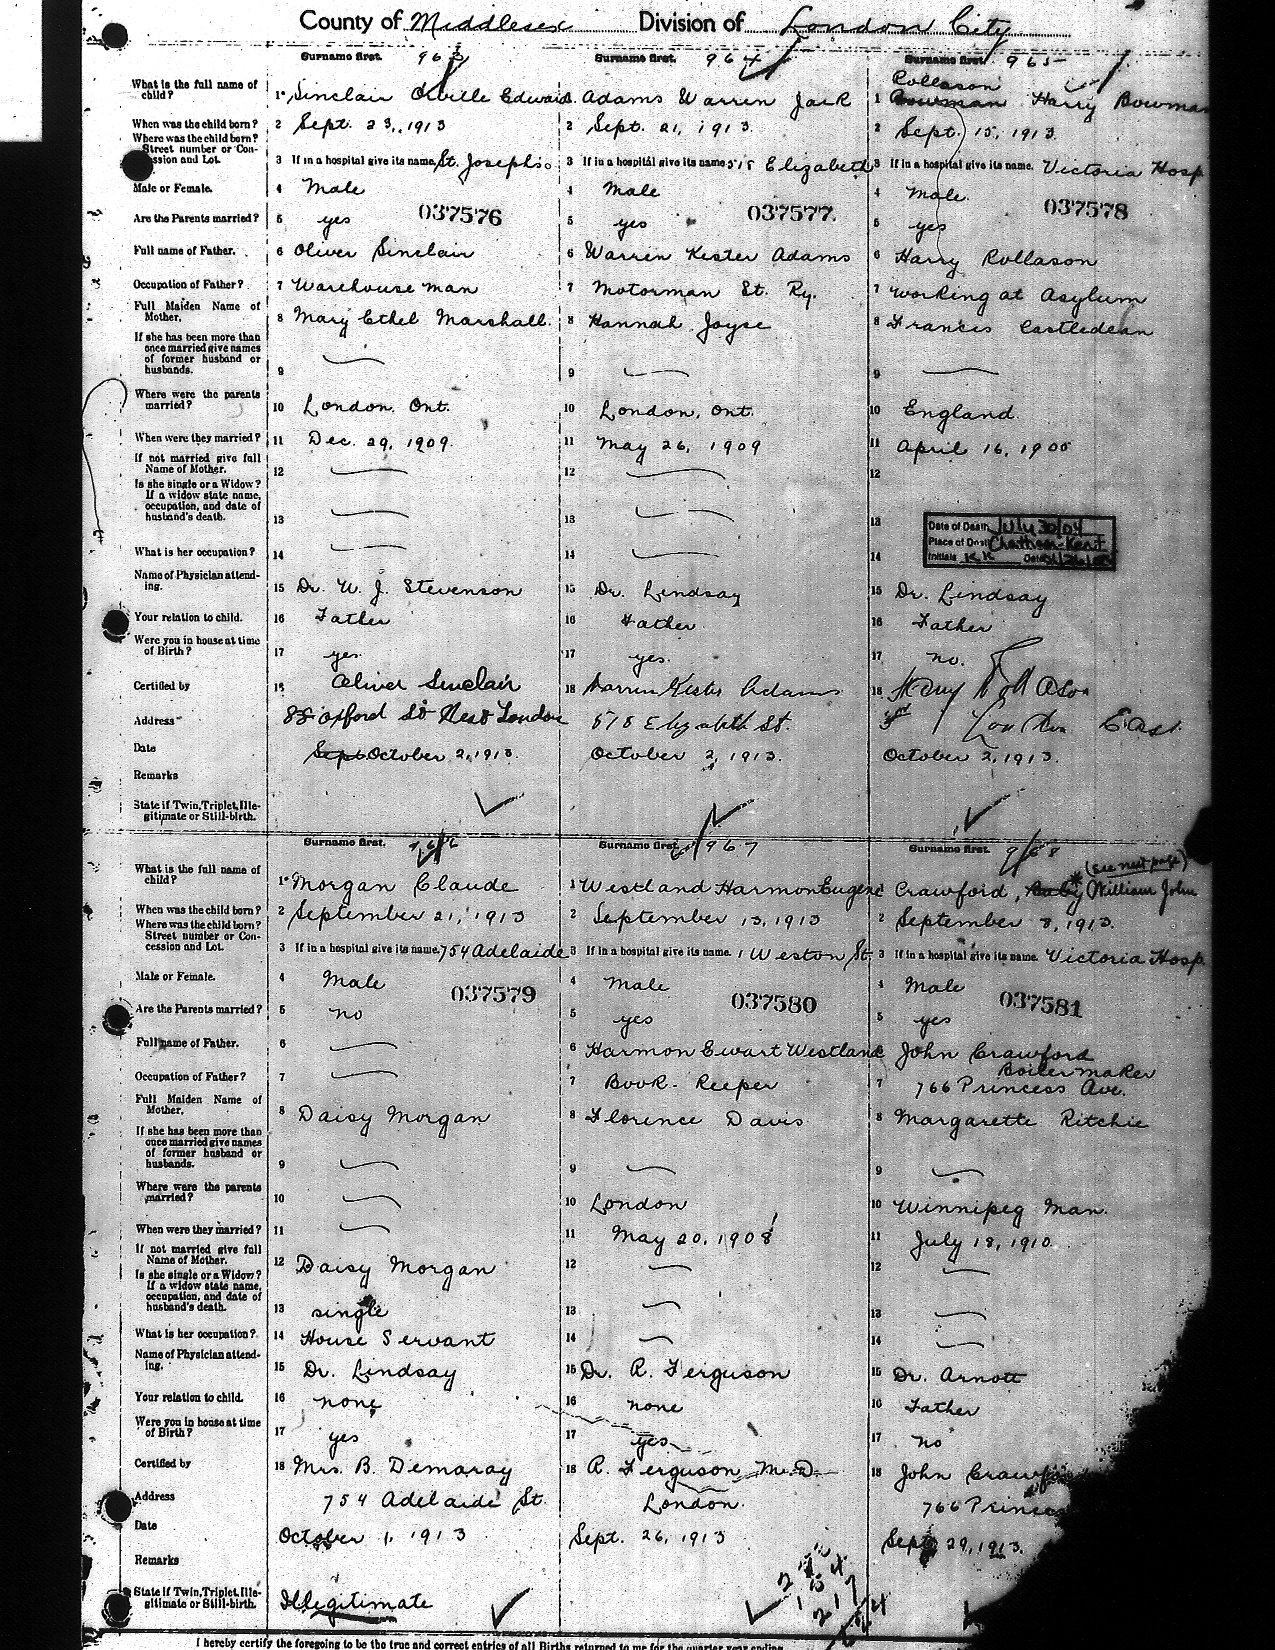 County of Middlesex Division of London City
Surname first. 963 Surname first. 964 Surname first. 965
What is the full name of child? 1 Sinclair Orville Edward 1 Adams Warren Jack 1 Rollason Bowman Harry Bowman
When was the child born? 2 Sept. 23, 1913 2 Sept. 21, 1913. 2 Sept. 15, 1913
Where was the child born? Street number or Concession and Lot. 3 If in a hospital give its name. St. Joseph's 3 If in a hospital give its name 518 Elizabeth 3 If in a hospital give its name. Victoria Hosp
Male or Female. 4 Male 4 Male 4 Male
037576 037577 037578
Are the Parents married? 5 yes 5 yes 5 yes
Full name of Father. 6 Oliver Sinclair 6 Warren Kester Adams 6 Harry Rollason
Occupation of Father? 7 Warehouse man 7 Motorman St. Ry. 7 Working at Asylum
Full Maiden Name of Mother. 8 Mary Ethel Marshall 8 Hannah Joyce 8 Francis Castledean
If she has been more than once married give names of former husband or husbands. 9 9 9
Where were the parents married? 10 London, Ont. 10 London, Ont. 10 England
When were they married? 11 Dec. 29, 1909. 11 May 26, 1909 11 April 16, 1900
If not married give full Name of Mother. 12 12 12
Is she single or a Widow? If a widow state name, occupation, and date of husband's death. 13 13 13
Date of Death July 30/04
Place of Death Chatham-Kent
Initials KK Date
What is her occupation? 14 14 14
Name of Physician attending. 15 Dr. W. J. Stevenson 15 Dr. Lindsay 15 Dr. Lindsay
Your relation to child. 16 Father 16 Father 16 Father
Were you in house at time of Birth? 17 yes. 17 yes. 17 no.
Certified by 18 Oliver Sinclair 18 Warren Kester Adams 18 Harry Rollason
Address 88 Oxford St West London 518 Elizabeth St. London East
Date Sept October 2, 1913. October 2, 1913. October 2, 1913.
Remarks
State if Twin, Triplet, Illegitimate or Still-birth.
Surname first. 966 Surname first. 967 Surname first. 968
(see next page)
What is the full name of child? 1 Morgan Claude 1 Westland Harmon Eugene 1 Crawford, Baby William John
When was the child born? 2 September 21, 1913 2 September 13, 1913 2 September 8, 1913.
Where was the child born? Street number or Concession and Lot. 3 If in a hospital give its name. 754 Adelaide 3 If in a hospital give its name. 1 Weston St. 3 If in a hospital give its name. Victoria Hosp
Male or Female. 4 Male 4 Male 4 Male
037579 037580 037581
Are the Parents married? 5 no 5 yes 5 yes
Full name of Father. 6 6 Harmon Ewart Westland 6 John Crawford
Boilermaker
Occupation of Father? 7 7 Book-Keeper 7 766 Princess Ave.
Full Maiden Name of Mother. 8 Daisy Morgan 8 Florence Davis 8 Margarette Ritchie
If she has been more than once married give names of former husband or husbands. 9 9 9
Where were the parents married? 10 10 London 10 Winnipeg Man.
When were they married? 11 11 May 20, 1908 11 July 18, 1910
If not married give full Name of Mother. 12 Daisy Morgan 12 12
Is she single or a Widow? If a widow state name, occupation, and date of husband's death. 13 single 13 13
What is her occupation? 14 House Servant 14 14
Name of Physician attending. 15 Dr. Lindsay 15 Dr. R. Ferguson 15 Dr. Arnott
Your relation to child. 16 none 16 none 16 Father
Were you in house at time of Birth? 17 yes 17 yes 17 no
Certified by 18 Mrs. B. Demaray 18 R. Ferguson M.D. 18 John Crawfo
Address 754 Adelaide St. London. 766 Princess
Date October 1, 1913 Sept. 26, 1913 Sept. 29, 1913.
Remarks
State if Twin, Triplet, Illegitimate or Still-birth. Illegitimate
I hereby certify the foregoing to be the true and correct entries of all Births returned to me for the quarter year ending